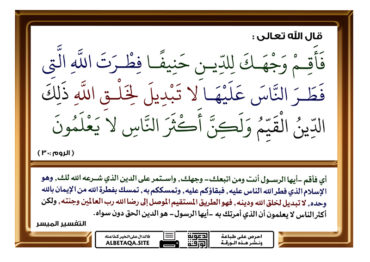 قال الله تعالى :
فَأَقِمْ وَجْهَكَ لِلدِّينِ حَنِيفًا فِطْرَتَ اللَّهِ الَّتِي
فَطَرَ النَّاسَ عَلَيْهَا لَا تَبْدِيلَ لِخَلْقِ اللَّهِ ذَلِكَ
الدِّينُ الْقَيِّمُ وَلَكِنَّ أَكْثَرَ النَّاسِ لَا يَعْلَمُونَ
( الروم :٣٠ )
أي فأقم -أيها الرسول أنت ومن اتبعك- وجهك، واستمر على الدين الذي شرعه الله لك، وهو
الإسلام الذي فطر الله الناس عليه، فبقاؤكم عليه، وتمسككم به، تمسك بفطرة الله من الإيمان بالله
وحده، لا تبديل لخلق الله ودينه، فهو الطريق المستقيم الموصل إلى رضا الله رب العالمين وجنته، ولكن
أكثر الناس لا يعلمون أن الذي أمرتك به -أيها الرسول- هو الدين الحق دون سواه.
التفسير الميسر
احرص على طباعة
ونشر هذه الورقة
فالدال على الخير كفاعله
ALBETAQA.SITE